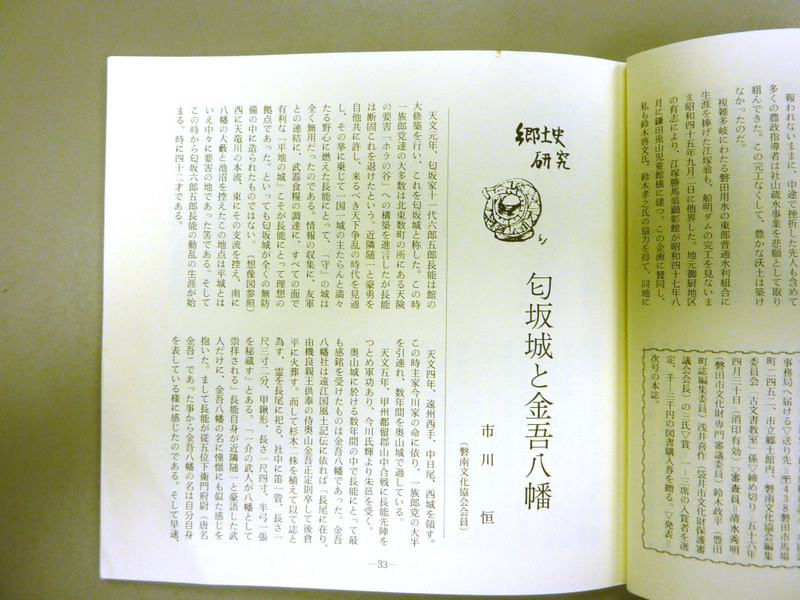 報われないままに、中途で挫折した先人も含めて
多くの農政指導者は社山疏水事業を悲願として取り
組んできた。この完工なくして、豊かな沃土は築け
なかったのだ。
複雑多岐にわたる磐田用水の東部普通水利組合に
生涯を捧げた江塚翁も、船明ダムの完工を見ないま
ま昭和四十五年九月二日に他界した。地元御厨地区
の有志により、江塚勝馬翁顕彰館が昭和四十七年八
月に鎌田兎山児童館横に建つ。この企画に賛同し、
私も鈴木啓文氏、鈴木孝之氏の協力を得て、同地に
事務局▽届ける▽送り先=〒438磐田市馬場
町二四五二、市立郷土館内、磐南文化協会編集
委員会「古文書教室」係▽締め切り=五十六年
四月三十日(消印有効)▽審査員=清水秀明
(磐田市文化財専門審議委員)鈴木政平(豊田
町誌編集委員)浅井喜作(袋井市文化財保護審
議会会長)の三氏▽賞=一〜三席の入賞者を選
定、千〜三千円の図書購入券を贈る。▽発表=
次号の本誌。
郷土史
研究
匂坂城と金吾八幡
市川 恒
(磐南文化協会会員)
天文元年、匂坂家十一代六郎五郎長能は館の
大修築を行い、これを匂坂城と称した。この時
一族郎党達の大多数は北東数町の所にある天険
の要害「ホラの谷」への構築を進言したが長能
は断固これを退けたという。近隣随一と豪勇を
自他共に許し、来るべき天下争乱の時代を見通
し、その挙に乗じて一国一城の主たらんと満々
たる野心に燃えた長能にとって、「守」の城は
全く無用だったのである。情報の収集に、友軍
との連結に、武器食糧の調達に、すべての面で
有利な「平地の城」こそが長能にとって理想の
拠点であった。といっても匂坂城が全くの無防
備の中に造られたものではない。(想像図参照)
西に天竜川の本流、東にその支流を控え、南に
八幡の大藪と池沼を控えたこの地点は平城とは
いえ中々に要害の地であった筈である。そして
この時から匂坂六郎五郎長能の動乱の生涯が始
まる。時に四十二才である。
天文四年、遠州西手、中日尾、西城を領す。
この時主家今川家の命に依り、一族郎党の大半
を引連れ、数年間を奥山城で過している。
天文五年、甲州都留郡山中合戦に長能先陣を
つとめ軍功あり、今川氏輝より朱邑を受く。
奥山城に於ける数年間の中で長能にとって最
も感銘を受けたものは金吾八幡であった。金吾
八幡社は遠江国風土記伝に依れば「長尾に在り、
由機良親王供奉の侍奥山金吾正定則卒して後倉
平に火葬す。而して杉木二株を植えて以て誌と
為す、霊を長尾に祀る、社中に笛一管、長さ一
尺三寸二分、甲鍬形、長さ一尺四寸、半弓一張
を秘蔵す」とある。「一介の武人が八幡として
崇拝される」長能自身が近隣随一と豪語した武
人だけに、金吾八幡の名に憧憬にも似た感じを
抱いた。まして長能が従五位下衛門府尉(唐名
金吾)であった事から金吾八幡の名は自分自身
を表している様に感じたのである。そして早速、
—33—